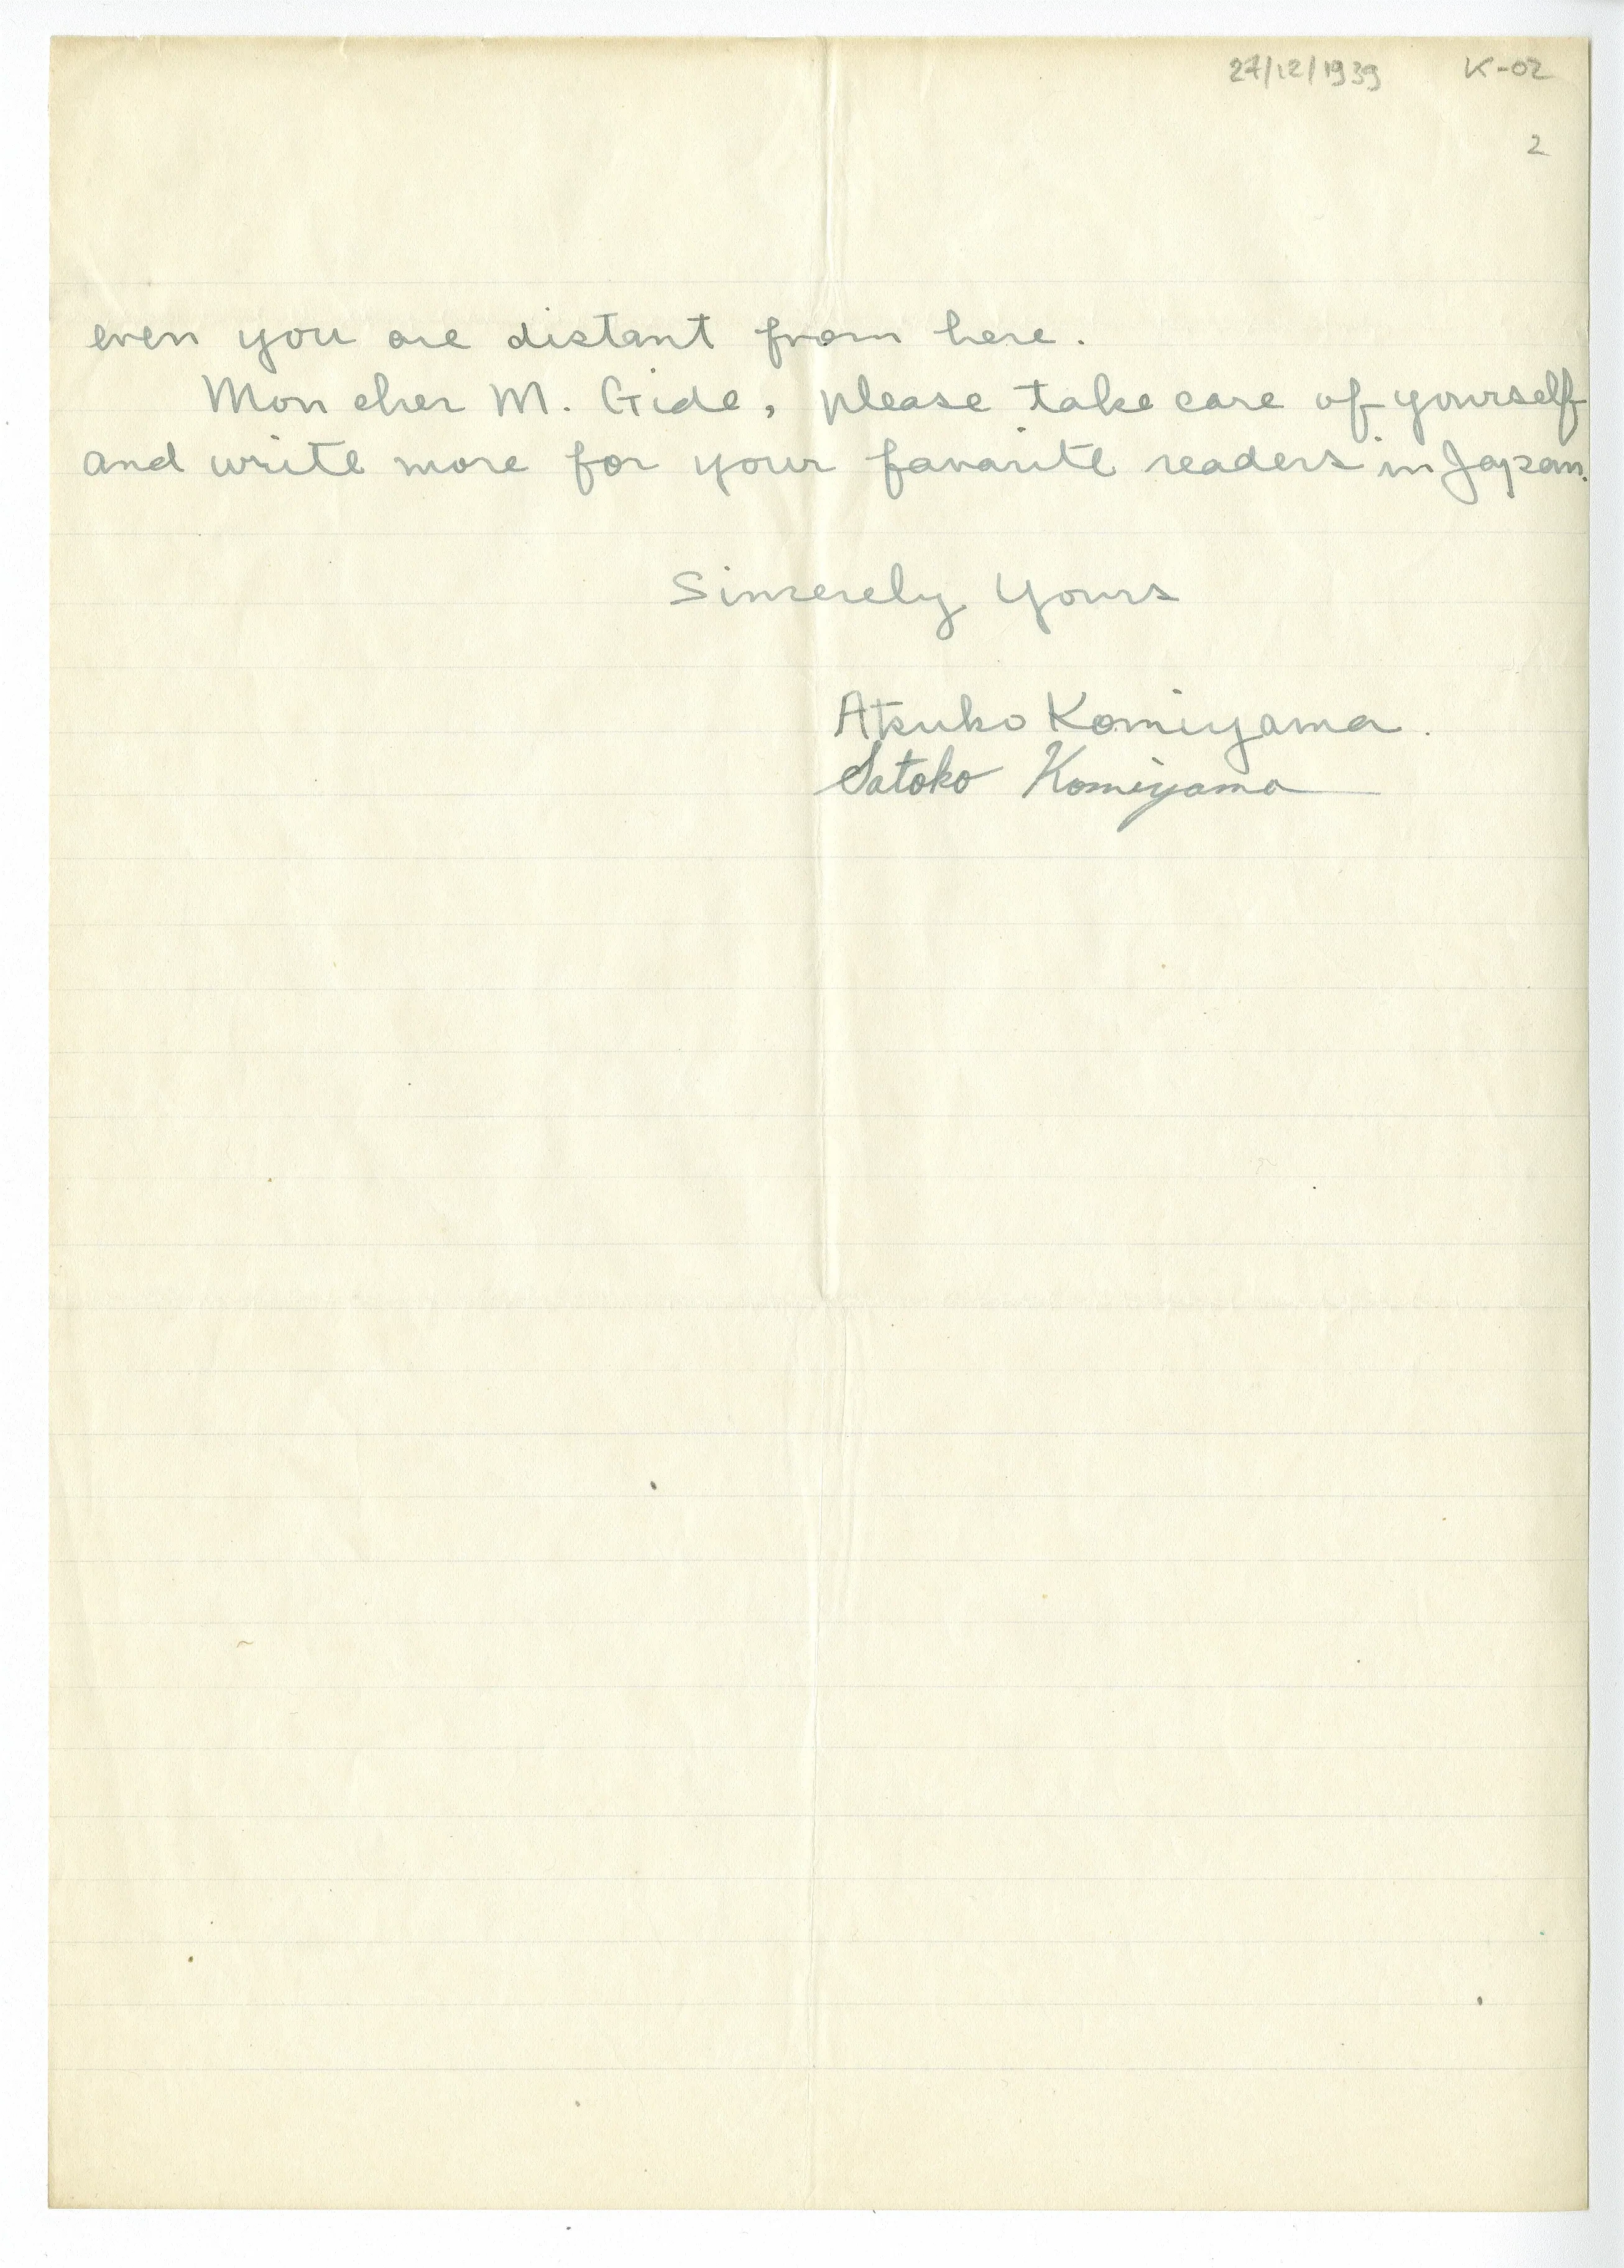 27/12/1939 K-02
2
even you are distant from here.
Mon cher M. Gide, please take care of yourself
and write more for your favarite readers in Japan.
Sincerely Yours
Atsuko Komiyama.
Satoko Komiyama